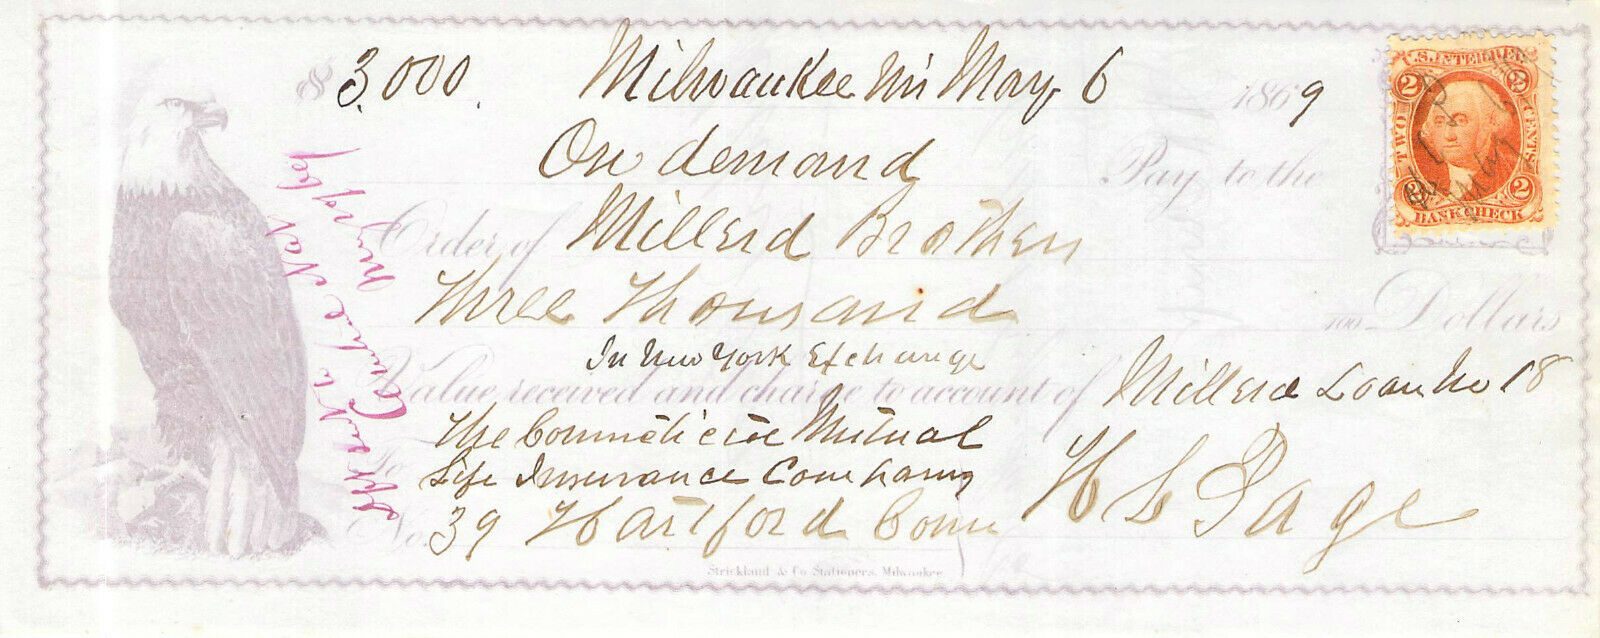 $ 3,000. Milwaukee Wis May 6 1869
On demand Pay to the
Order of Millerd Brothers
Three Thousand 100 Dollars
In New York Exchange
Value received and charge to account of Millerd Loan No 18
The Connecticut Mutual
To Life Insurance Company
No. 39 Hartford Conn H L Page
Strickland & Co Stationers, Milwaukee
U.S. INTER. REV.
2 2
TWO CENTS
2 2
BANK CHECK